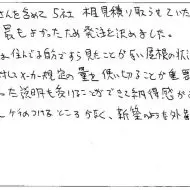 さんを含めて5社 相見積り取らせていた
最もよかったため発注を決めました。
住んでる前ですら見たことがない屋根の状
メーカー規定の量を使い切ることが重要
った説明も受けることができて納得感が
ケチのつけるところがなく、新築のような外